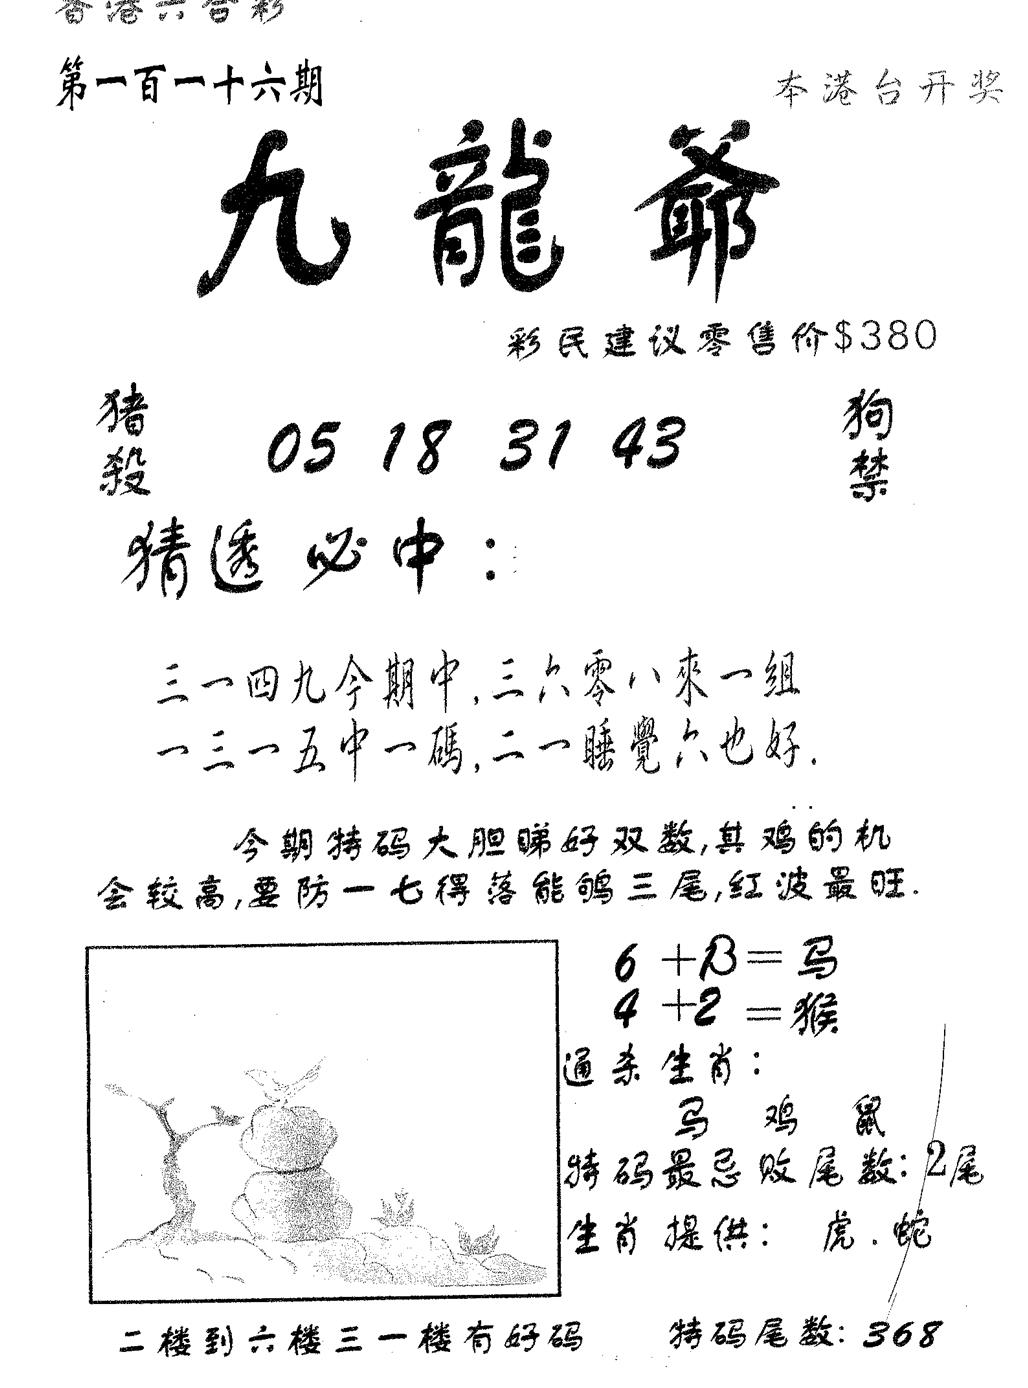 香港六合彩
第一百一十六期
本港台开奖
九龍爺
彩民建议零售价$380
猪殺 05 18 31 43 狗禁
猜透必中：
三一四九今期中,三六零八來一組
一三一五中一碼,二一睡覺六也好.
今期特码大胆睇好双数,其鸡的机
会较高,要防一七得落能鸲三尾,红波最旺.
6+13=马
4+2=猴
通杀生肖：
马 鸡 鼠
特码最忌败尾数：2尾
生肖提供： 虎.蛇
二楼到六楼三一楼有好码
特码尾数：368